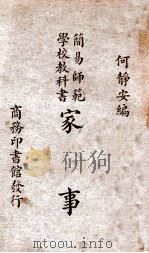 何靜安編
簡易師範
學校教科書
家事
商務印書館發行
www.mtoou.info